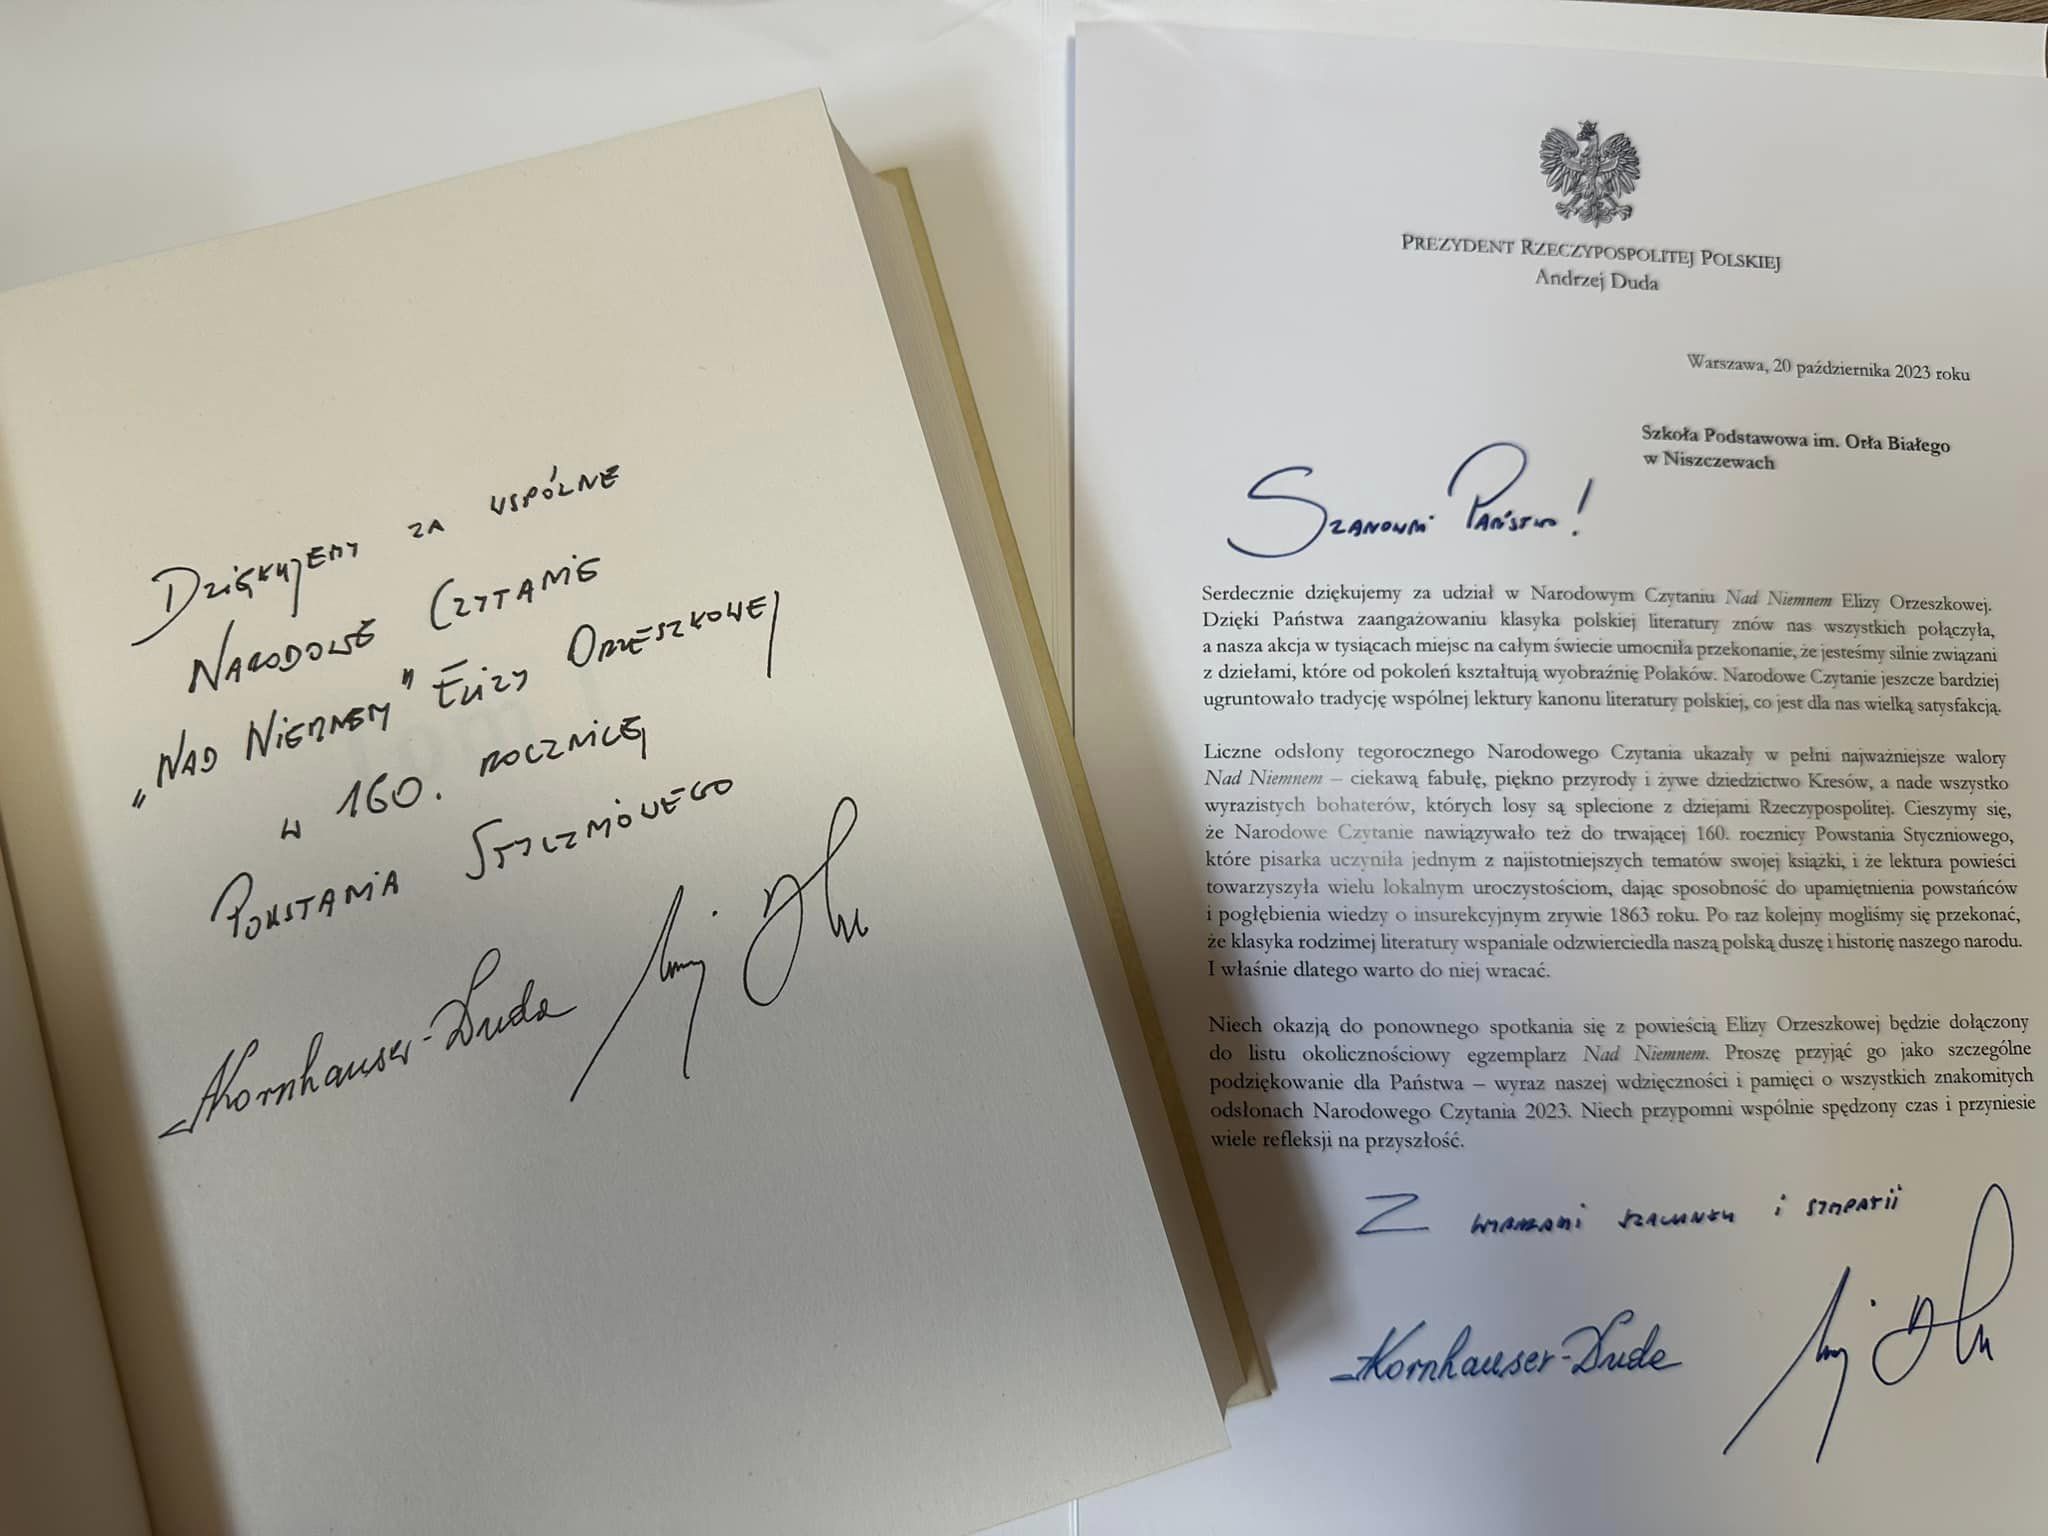 Dziękujemy za wspólne
Narodowe Czytanie
„Nad Niemnem” Elizy Orzeszkowej
w 160. rocznicę
Powstania Styczniowego
AKornhauser-Duda
PREZYDENT RZECZYPOSPOLITEJ POLSKIEJ
Andrzej Duda
Warszawa, 20 października 2023 roku
Szkoła Podstawowa im. Orła Białego
w Niszczewach
Szanowni Państwo!
Serdecznie dziękujemy za udział w Narodowym Czytaniu Nad Niemnem Elizy Orzeszkowej.
Dzięki Państwa zaangażowaniu klasyka polskiej literatury znów nas wszystkich połączyła,
a nasza akcja w tysiącach miejsc na całym świecie umocniła przekonanie, że jesteśmy silnie związani
z dziełami, które od pokoleń kształtują wyobraźnię Polaków. Narodowe Czytanie jeszcze bardziej
ugruntowało tradycję wspólnej lektury kanonu literatury polskiej, co jest dla nas wielką satysfakcją.
Liczne odsłony tegorocznego Narodowego Czytania ukazały w pełni najważniejsze walory
Nad Niemnem – ciekawą fabułę, piękno przyrody i żywe dziedzictwo Kresów, a nade wszystko
wyrazistych bohaterów, których losy są splecione z dziejami Rzeczypospolitej. Cieszymy się,
że Narodowe Czytanie nawiązywało też do trwającej 160. rocznicy Powstania Styczniowego,
które pisarka uczyniła jednym z najistotniejszych tematów swojej książki, i że lektura powieści
towarzyszyła wielu lokalnym uroczystościom, dając sposobność do upamiętnienia powstańców
i pogłębienia wiedzy o insurekcyjnym zrywie 1863 roku. Po raz kolejny mogliśmy się przekonać,
że klasyka rodzimej literatury wspaniale odzwierciedla naszą polską duszę i historię naszego narodu.
I właśnie dlatego warto do niej wracać.
Niech okazją do ponownego spotkania się z powieścią Elizy Orzeszkowej będzie dołączony
do listu okolicznościowy egzemplarz Nad Niemnem. Proszę przyjąć go jako szczególne
podziękowanie dla Państwa – wyraz naszej wdzięczności i pamięci o wszystkich znakomitych
odsłonach Narodowego Czytania 2023. Niech przypomni wspólnie spędzony czas i przyniesie
wiele refleksji na przyszłość.
Z wyrazami szacunku i sympatii
AKornhauser-Duda